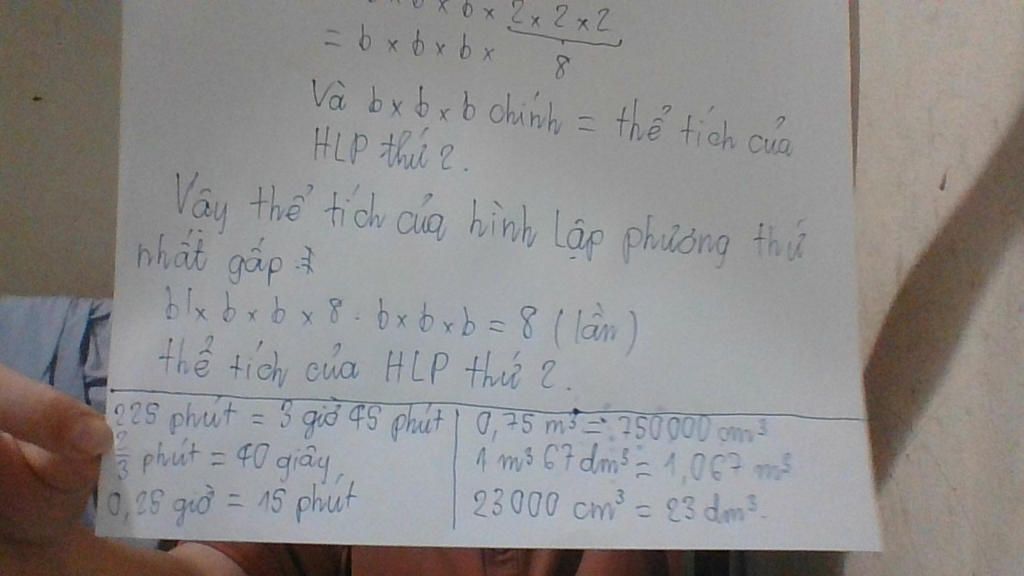 b × b × 2 × 2 × 2
= b × b × b × 8
Và b × b × b chính = thể tích của
HLP thứ 2.
Vây thể tích của hình lập phương thứ
nhất gấp :
b × b × b × 8 : b × b × b = 8 (lần)
thể tích của HLP thứ 2.
225 phút = 3 giờ 45 phút
2/3 phút = 40 giây
0,25 giờ = 15 phút
0,75 m³ = 750000 cm³
1 m³ 67 dm³ = 1,067 m³
23000 cm³ = 23 dm³.